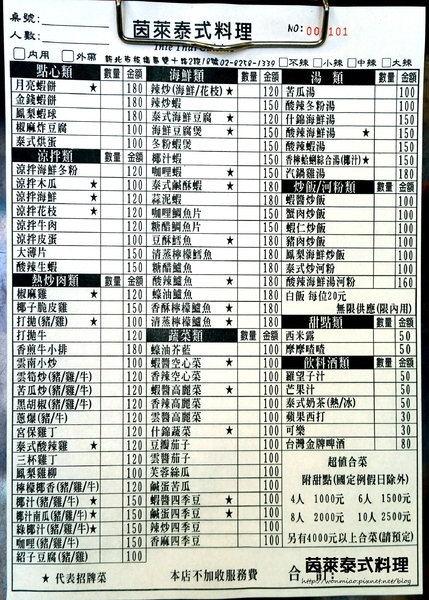 桌號:
人數:
茵萊泰式料理
Inle Thai
NO: 00 101
內用 外帶
新北市板橋縣雙十路2段18號02-8258-1339
不辣 小辣 中辣 大辣
點心類 數量 金額
月亮蝦餅 ★ 180
金錢蝦餅 180
鳳梨蝦球 180
椒麻炸豆腐 100
泰式烘蛋 100
涼拌類 數量 金額
涼拌海鮮冬粉 120
涼拌木瓜 ★ 100
涼拌海鮮 ★ 120
涼拌花枝 ★ 120
涼拌牛肉 120
涼拌皮蛋 100
大薄片 150
酸辣生蝦 150
熱炒肉類 數量 金額
椒麻雞 ★ 120
椰子脆皮雞 150
打拋(豬/雞) ★ 100
打拋牛 120
香煎牛小排 180
雲南小炒 100
雲筍炒(豬/雞/牛) 120
苦瓜炒(豬/雞/牛) 120
黑胡椒(豬/雞/牛) 120
蔥爆(豬/雞/牛) 120
宮保雞丁 120
泰式酸辣雞 ★ 120
三杯雞丁 120
鳳梨雞柳 120
檸檬椰香(豬/雞/牛) 120
椰汁(豬/雞/牛) ★ 150
椰汁南瓜(豬/雞/牛) ★ 150
綠椰汁(豬/雞/牛) ★ 150
咖哩(豬/雞/牛) 150
紹子豆腐(豬/雞) 100
海鮮類 數量 金額
辣炒(海鮮/花枝) ★ 120
辣炒蝦 150
泰式海鮮豆腐 ★ 120
海鮮豆腐煲 ★ 120
冬粉蝦煲 150
椰汁蝦 150
咖哩蝦 ★ 150
泰式鹹酥蝦 ★ 150
蒜泥蝦 150
咖哩鯛魚片 150
糖醋鯛魚片 150
豆酥鱈魚 ★ 180
清蒸檸檬鱈魚 180
糖醋鱸魚 180
酸辣鱸魚 ★ 180
蠔油鱸魚 180
香酥檸檬鱸魚 ★ 180
清蒸檸檬鱸魚 ★ 180
蔬菜類 數量 金額
蠔油芥藍 100
蝦醬空心菜 ★ 100
香辣空心菜 100
蝦醬高麗菜 ★ 100
香辣高麗菜 100
雲醬高麗菜 100
什錦蔬菜 ★ 100
豆瓣茄子 100
雲醬茄子 100
芙蓉絲瓜 100
鹹蛋苦瓜 100
蝦醬四季豆 ★ 100
鹹蛋四季豆 ★ 100
辣炒四季豆 100
香麻四季豆 100
湯類 數量 金額
苦瓜湯 100
酸辣冬粉湯 100
什錦海鮮湯 150
酸辣海鮮湯 ★ 150
酸辣蝦湯 150
香檸蛤蜊綜合湯(椰汁) ★ 150
汽鍋雞湯 180
炒飯/河粉類 數量 金額
蝦醬炒飯 100
蟹肉炒飯 100
蝦仁炒飯 100
豬肉炒飯 100
鳳梨海鮮炒飯 100
泰式炒河粉 100
酸辣海鮮湯河粉 160
白飯 每位20元
無限供應(限內用)
甜點類 數量 金額
西米露 50
摩摩喳喳 50
飲料酒類 數量 金額
羅望子汁 50
芒果汁 50
泰式奶茶(熱/冰) 50
蘋果西打 30
可樂 30
台灣金牌啤酒 80
超值合菜
附甜點(國定例假日除外)
4人 1000元 6人 1500元
8人 2000元 10人 2500元
另有4000元以上合菜(請預定)
★ 代表招牌菜
本店不加收服務費
合計:
茵萊泰式料理
http://wonmiao.pixnet.net/blog